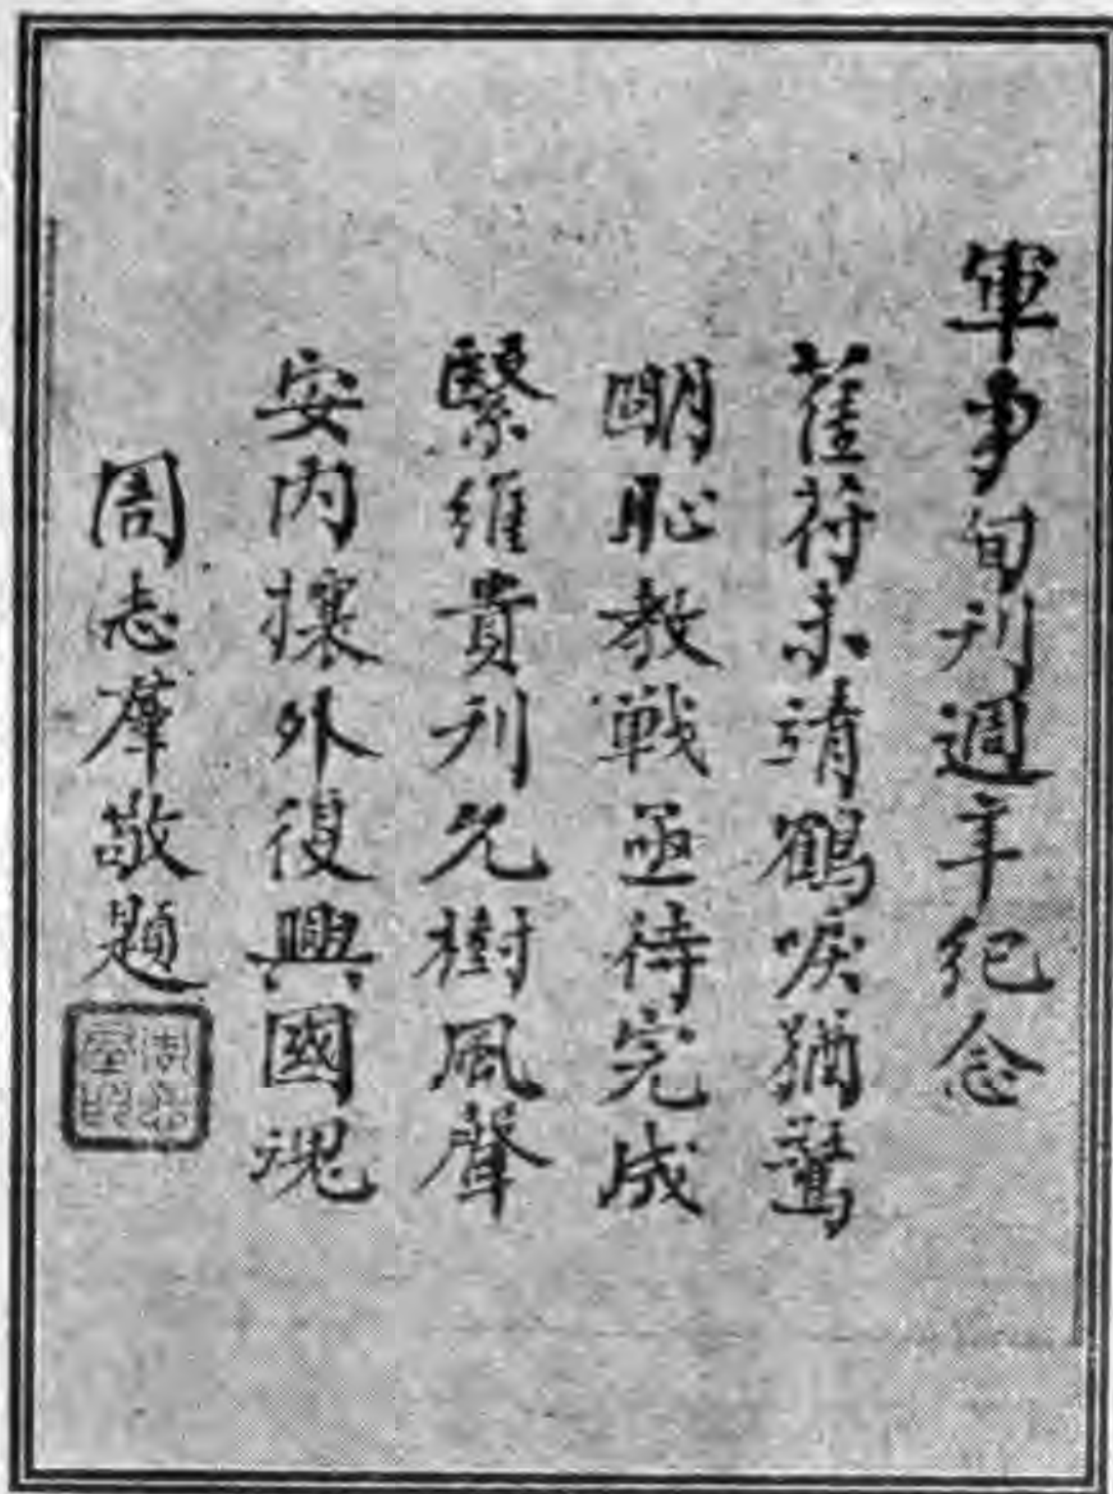 軍事旬刊週年紀念
萑苻未靖鶴唳猶驚
明恥教戰亟待完成
繄維貴刊允樹風聲
安內攘外復興國魂
周志羣敬題